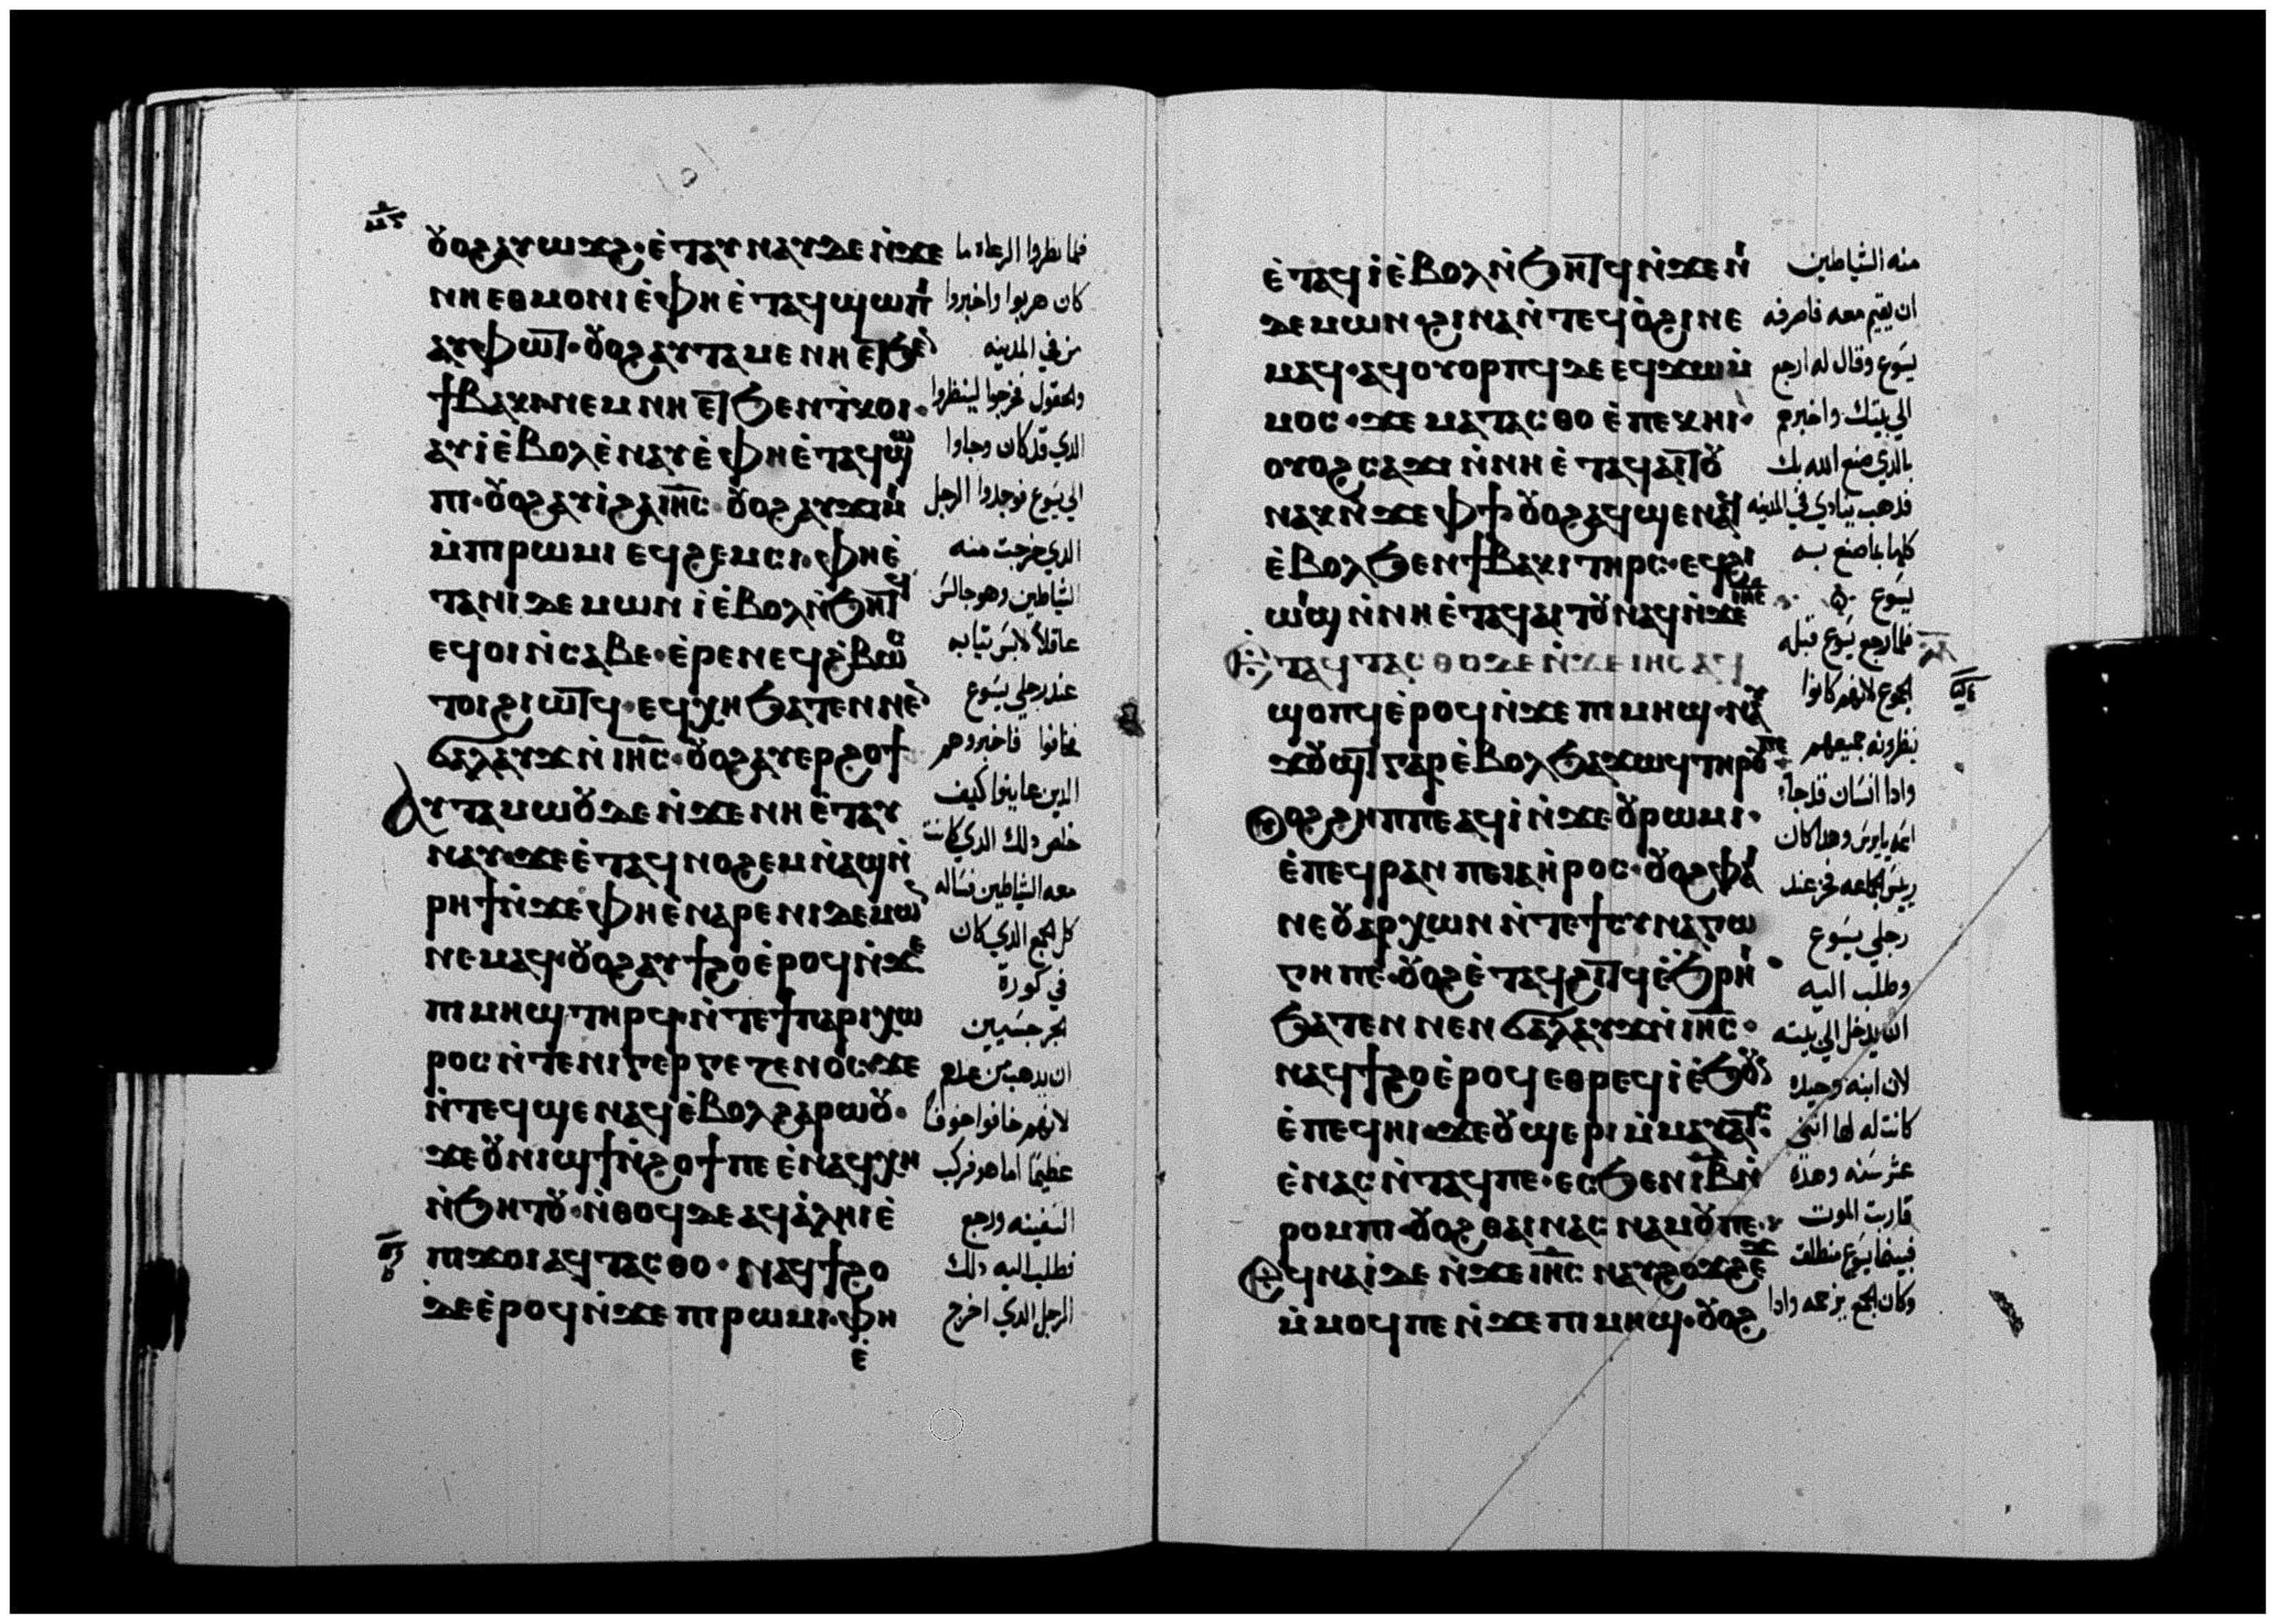 ⲟⲩⲟϩ ⲁⲩⲱϫϩ· ⲉ̀ⲧⲁⲩⲛⲁⲩ ⲇⲉ ⲛ̀ϫⲉ
ⲛⲏⲉⲑⲙⲟⲛⲓ ⲉ̀ⲫⲏⲉ̀ⲧⲁϥϣⲱⲡⲓ
ⲁⲩⲫⲱⲧ· ⲟⲩⲟϩ ⲁⲩⲧⲁⲙⲉ ⲛⲏⲉⲧϧⲉⲛ
ϯⲃⲁⲕⲓ ⲛⲉⲙ ⲛⲏⲉⲧϧⲉⲛ ⲧⲕⲟⲓ·
ⲁⲩⲓ̀ ⲉ̀ⲃⲟⲗ ⲉ̀ⲛⲁⲩ ⲉ̀ⲫⲏⲉ̀ⲧⲁϥϣⲱ
ⲡⲓ· ⲟⲩⲟϩ ⲁⲩⲓ̀ ϩⲁ ⲓⲏ̅ⲥ̅ ⲟⲩⲟϩ ⲁⲩϫⲓⲙⲓ
ⲙ̀ⲡⲓⲣⲱⲙⲓ ⲉϥϩⲉⲙⲥⲓ· ⲫⲏⲉ̀
ⲧⲁⲛⲓⲇⲉⲙⲱⲛ ⲓ̀ ⲉ̀ⲃⲟⲗ ⲛ̀ϧⲏⲧϥ
ⲉϥⲟⲓ ⲛ̀ⲥⲁⲃⲉ· ⲉ̀ⲣⲉ ⲛⲉϥϩ̀ⲃⲱⲥ
ⲧⲟⲓ ϩⲓⲱⲧϥ· ⲉϥⲭⲏ ϧⲁⲧⲉⲛ ⲛⲉⲛ
ϭⲁⲗⲁⲩϫ ⲛ̀ⲓⲏ̅ⲥ̅· ⲟⲩⲟϩ ⲁⲩⲉⲣϩⲟϯ
ⲁⲩⲧⲁⲙⲱⲟⲩ ⲇⲉ ⲛ̀ϫⲉ ⲛⲏⲉ̀ⲧⲁⲩ
ⲛⲁⲩ· ϫⲉ ⲉ̀ⲧⲁϥⲛⲟϩⲉⲙ ⲛ̀ⲁϣ ⲛ̀
ⲣⲏϯ ⲛ̀ϫⲉ ⲫⲏⲉ̀ⲛⲁⲣⲉ ⲛⲓⲇⲉⲙⲱⲛ
ⲛⲉⲙⲁϥ· ⲟⲩⲟϩ ⲁⲩϯϩⲟ ⲉ̀ⲣⲟϥ ⲛ̀ϫⲉ
ⲡⲓⲙⲏϣ ⲧⲏⲣϥ· ⲛ̀ⲧⲉ ϯⲡⲉⲣⲓⲭⲱ
ⲣⲟⲥ ⲛ̀ⲧⲉ ⲛⲓⲅⲉⲣⲅⲉⲥⲉⲛⲟⲥ· ϫⲉ
ⲛ̀ⲧⲉϥϣⲉⲛⲁϥ ⲉ̀ⲃⲟⲗ ϩⲁⲣⲱⲟⲩ·
ϫⲉ ⲟⲩⲛⲓϣϯ ⲛ̀ϩⲟϯ ⲡⲉ ⲉ̀ⲛⲁϥⲭⲏ
ⲛ̀ϧⲏⲧⲟⲩ· ⲛ̀ⲑⲟϥ ⲇⲉ ⲁϥⲁ̀ⲗⲏⲓ ⲉ̀
ⲡⲓϫⲟⲓ ⲁϥⲧⲁⲥⲑⲟ· ⲛⲁϥϯϩⲟ
ⲇⲉ ⲉ̀ⲣⲟϥ ⲛ̀ϫⲉ ⲡⲓⲣⲱⲙⲓ· ⲫⲏ
ⲉ̀
فلما نظروا الرعاه ما
كان هربوا واخبروا
من في المدينه
والحقول فخرجوا لينظروا
الدي قد كان وجاوا
الي يسوع فوجدوا الرجل
الدي خرجت منه
الشياطين وهو جالس
عاقلاً لابس تيابه
عند رجلي يسوع
فخافوا فاخبروهم
الدين عاينوا كيف
خلص دلك الدي كانت
معه الشياطين فساله
كل الجمع الدي كان
في كورة
الجرجسيين
ان يدهب من عندهم
لانهم خافوا خوفاً
عظيمًا اما هو فركب
السفينه ورجع
فطلب اليه دلك
الرجل الدي اخرج
ⲉ̀ⲧⲁϥⲓ̀ ⲉ̀ⲃⲟⲗ ⲛ̀ϧⲏⲧϥ ⲛ̀ϫⲉ ⲛⲓ
ⲇⲉⲙⲱⲛ· ϩⲓⲛⲁ ⲛ̀ⲧⲉϥⲟ̀ϩⲓ ⲛⲉ
ⲙⲁϥ· ⲁϥⲟⲩⲟⲣⲡϥ ⲇⲉ ⲉϥϫⲱ ⲙ̀
ⲙⲟⲥ· ϫⲉ ⲙⲁⲧⲁⲥⲑⲟ ⲉ̀ⲡⲉⲕⲏⲓ·
ⲟⲩⲟϩ ⲥⲁϫⲓ ⲛ̀ⲛⲏⲉ̀ⲧⲁϥⲁⲓⲧⲟⲩ
ⲛⲁⲕ ⲛ̀ϫⲉ ⲫϯ ⲟⲩⲟϩ ⲁϥϣⲉⲛⲁϥ
ⲉ̀ⲃⲟⲗ ϧⲉⲛ ϯⲃⲁⲕⲓ ⲧⲏⲣⲥ· ⲉϥϩⲓ
ⲱⲓϣ ⲛ̀ⲛⲏⲉ̀ⲧⲁϥⲁⲓⲧⲟⲩ ⲛⲁϥ ⲛ̀ϫⲉ ⲓⲏⲥ
ⲉⲧⲁϥⲧⲁⲥⲑⲟ ⲇⲉ ⲛ̀ϫⲉ ⲓⲏⲥ ⲁϥ
ϣⲟⲡϥ ⲉ̀ⲣⲟϥ ⲛ̀ϫⲉ ⲡⲓⲙⲏϣ· ⲛⲁⲩ
ϫⲟⲩϣⲧ ⲅⲁⲣ ⲉ̀ⲃⲟⲗ ϧⲁϫⲱϥ ⲧⲏⲣⲟⲩ ⲡⲉ
ⲟⲩⲟϩ ϩⲏⲡⲡⲉ ⲁϥⲓ̀ ⲛ̀ϫⲉ ⲟⲩⲣⲱⲙⲓ·
ⲉ̀ⲡⲉϥⲣⲁⲛ ⲡⲉ ⲓⲁⲏ̀ⲣⲟⲥ· ⲟⲩⲟϩ ⲫⲁⲓ
ⲛⲉ ⲟⲩⲁⲣⲭⲱⲛ ⲛ̀ⲧⲉ ϯⲥⲩⲛⲁⲅⲱ
ⲅⲏ ⲡⲉ· ⲟⲩⲟϩ ⲉ̀ⲧⲁϥϩⲓⲧϥ ⲉ̀ϧⲣⲏⲓ
ϧⲁⲧⲉⲛ ⲛⲉⲛϭⲁⲗⲁⲩϫ ⲛ̀ⲓⲏ̅ⲥ̅·
ⲛⲁϥϯϩⲟ ⲉ̀ⲣⲟϥ ⲉⲑⲣⲉϥⲓ̀ ⲉ̀ϧⲟⲩⲛ
ⲉ̀ⲡⲉϥⲏⲓ· ϫⲉ ⲟⲩϣⲉⲣⲓ ⲙ̀ⲙⲁⲩⲁⲧⲥ
ⲉ̀ⲛⲁⲥⲛ̀ⲧⲁϥ ⲡⲉ· ⲉⲥϧⲉⲛ ⲓⲃ ⲛ̀
ⲣⲟⲙⲡⲓ· ⲟⲩⲟϩ ⲑⲁⲓ ⲛⲁⲥⲛⲁⲙⲟⲩ ⲡⲉ·
ⲉϥⲛⲁⲓ̀ ⲇⲉ ⲛ̀ϫⲉ ⲓⲏ̅ⲥ̅ ⲛⲁⲩϩⲟϫϩⲉϫ
ⲙ̀ⲙⲟϥ ⲡⲉ ⲛ̀ϫⲉ ⲡⲓⲙⲏϣ· ⲟⲩⲟϩ
منه الشياطين
ان يقيم معه فاصرفه
يسوع وقال له ارجع
الي بيتك واخبرهم
بالدي صنع الله بك
فدهب ينادي في المدينه
كلها بما صنع به
يسوع
فلما رجع يسوع قبله
الجموع لانهم كانوا
ينظرونه جميعهم
وادا انسان قد جاء
اسمه يايرس وهدا كان
رييس الجماعه فخر عند
رجلي يسوع
وطلب اليه
ان يدخل الي بيته
لان ابنه وحيده
كانت له لها اتني
عشر سنه وهده
قاربت الموت
فبينما يسوع منطلق
وكان الجمع يزحمه وادا